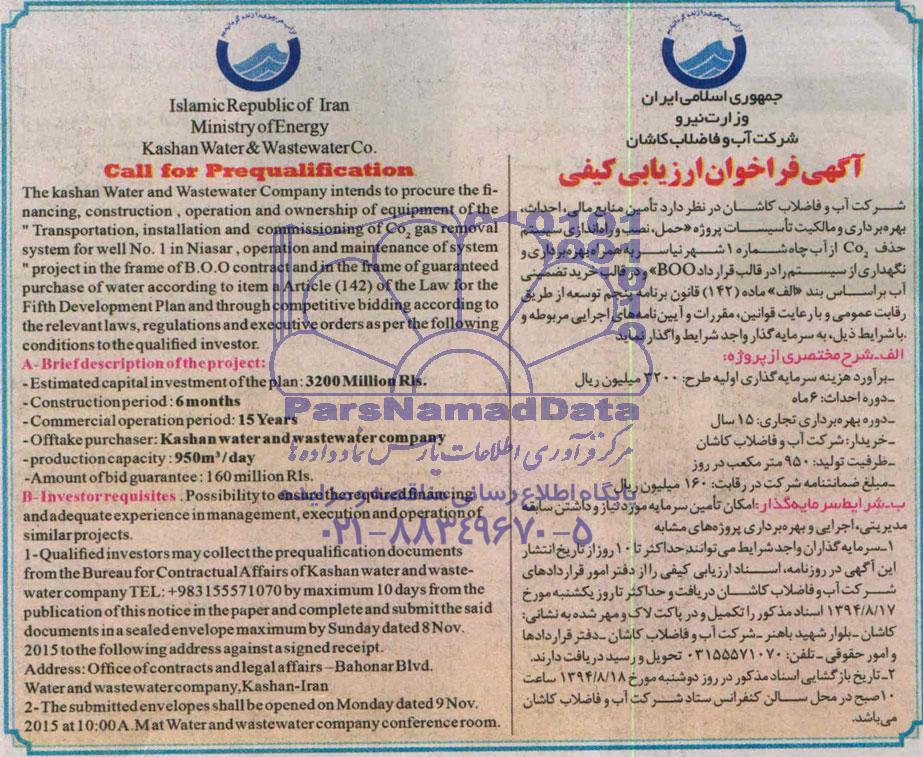 Islamic Republic of Iran
Ministry of Energy
Kashan Water & Wastewater Co.
Call for Prequalification
The kashan Water and Wastewater Company intends to procure the fi-
nancing, construction , operation and ownership of equipment of the
" Transportation, installation and commissioning of Co2 gas removal
system for well No. 1 in Niasar , operation and maintenance of system
" project in the frame of B.O.O contract and in the frame of guaranteed
purchase of water according to item a Article (142) of the Law for the
Fifth Development Plan and through competitive bidding according to
the relevant laws, regulations and executive orders as per the following
conditions to the qualified investor.
A- Brief description of the project:
- Estimated capital investment of the plan : 3200 Million Rls.
- Construction period : 6 months
- Commercial operation period: 15 Years
- Offtake purchaser: Kashan water and wastewater company
- production capacity : 950m³ / day
- Amount of bid guarantee : 160 million Rls.
B- Investor requisites . Possibility to ensure the required financing
and adequate experience in management, execution and operation of
similar projects.
1- Qualified investors may collect the prequalification documents
from the Bureau for Contractual Affairs of Kashan water and waste-
water company TEL: +983155571070 by maximum 10 days from the
publication of this notice in the paper and complete and submit the said
documents in a sealed envelope maximum by Sunday dated 8 Nov.
2015 to the following address against a signed receipt.
Address: Office of contracts and legal affairs – Bahonar Blvd.
Water and wastewater company, Kashan-Iran
2- The submitted envelopes shall be opened on Monday dated 9 Nov.
2015 at 10:00 A.M at Water and wastewater company conference room.
جمهوری اسلامی ایران
وزارت نیرو
شرکت آب و فاضلاب کاشان
آگهی فراخوان ارزیابی کیفی
شرکت آب و فاضلاب کاشان در نظر دارد تأمین منابع مالی، احداث،
بهره برداری و مالکیت تأسیسات پروژه «حمل، نصب و راه اندازی سیستم
حذف Co2 از آب چاه شماره ۱ شهر نیاسر به همراه بهره برداری و
نگهداری از سیستم را در قالب قرارداد BOO» و در قالب خرید تضمینی
آب براساس بند «الف» ماده (۱۴۲) قانون برنامه پنجم توسعه از طریق
رقابت عمومی و با رعایت قوانین، مقررات و آیین نامه های اجرایی مربوطه و
با شرایط ذیل، به سرمایه گذار واجد شرایط واگذار نماید.
الف-شرح مختصری از پروژه:
-برآورد هزینه سرمایه گذاری اولیه طرح: ۳۲۰۰ میلیون ریال
-دوره احداث: ۶ ماه
-دوره بهره برداری تجاری: ۱۵ سال
-خریدار: شرکت آب و فاضلاب کاشان
-ظرفیت تولید: ۹۵۰ متر مکعب در روز
-مبلغ ضمانتنامه شرکت در رقابت: ۱۶۰ میلیون ریال
ب-شرایط سرمایه گذار: امکان تأمین سرمایه مورد نیاز و داشتن سابقه
مدیریتی، اجرایی و بهره برداری پروژه های مشابه
۱-سرمایه گذاران واجد شرایط می توانند حداکثر تا ۱۰ روز از تاریخ انتشار
این آگهی در روزنامه، اسناد ارزیابی کیفی را از دفتر امور قراردادهای
شرکت آب و فاضلاب کاشان دریافت و حداکثر تا روز یکشنبه مورخ
۱۳۹۴/۸/۱۷ اسناد مذکور را تکمیل و در پاکت لاک و مهر شده به نشانی:
کاشان - بلوار شهید باهنر - شرکت آب و فاضلاب کاشان - دفتر قراردادها
و امور حقوقی - تلفن: ۰۳۱۵۵۵۷۱۰۷۰ تحویل و رسید دریافت دارند.
۲-تاریخ بازگشایی اسناد مذکور در روز دوشنبه مورخ ۱۳۹۴/۸/۱۸ ساعت
۱۰ صبح در محل سالن کنفرانس ستاد شرکت آب و فاضلاب کاشان
می باشد.
ParsNamadData
مرکز فرآوری اطلاعات پارس نماد داده ها
پایگاه اطلاع رسانی مناقصه و مزایده
۰۲۱-۸۸۳۴۹۶۷۰-۵